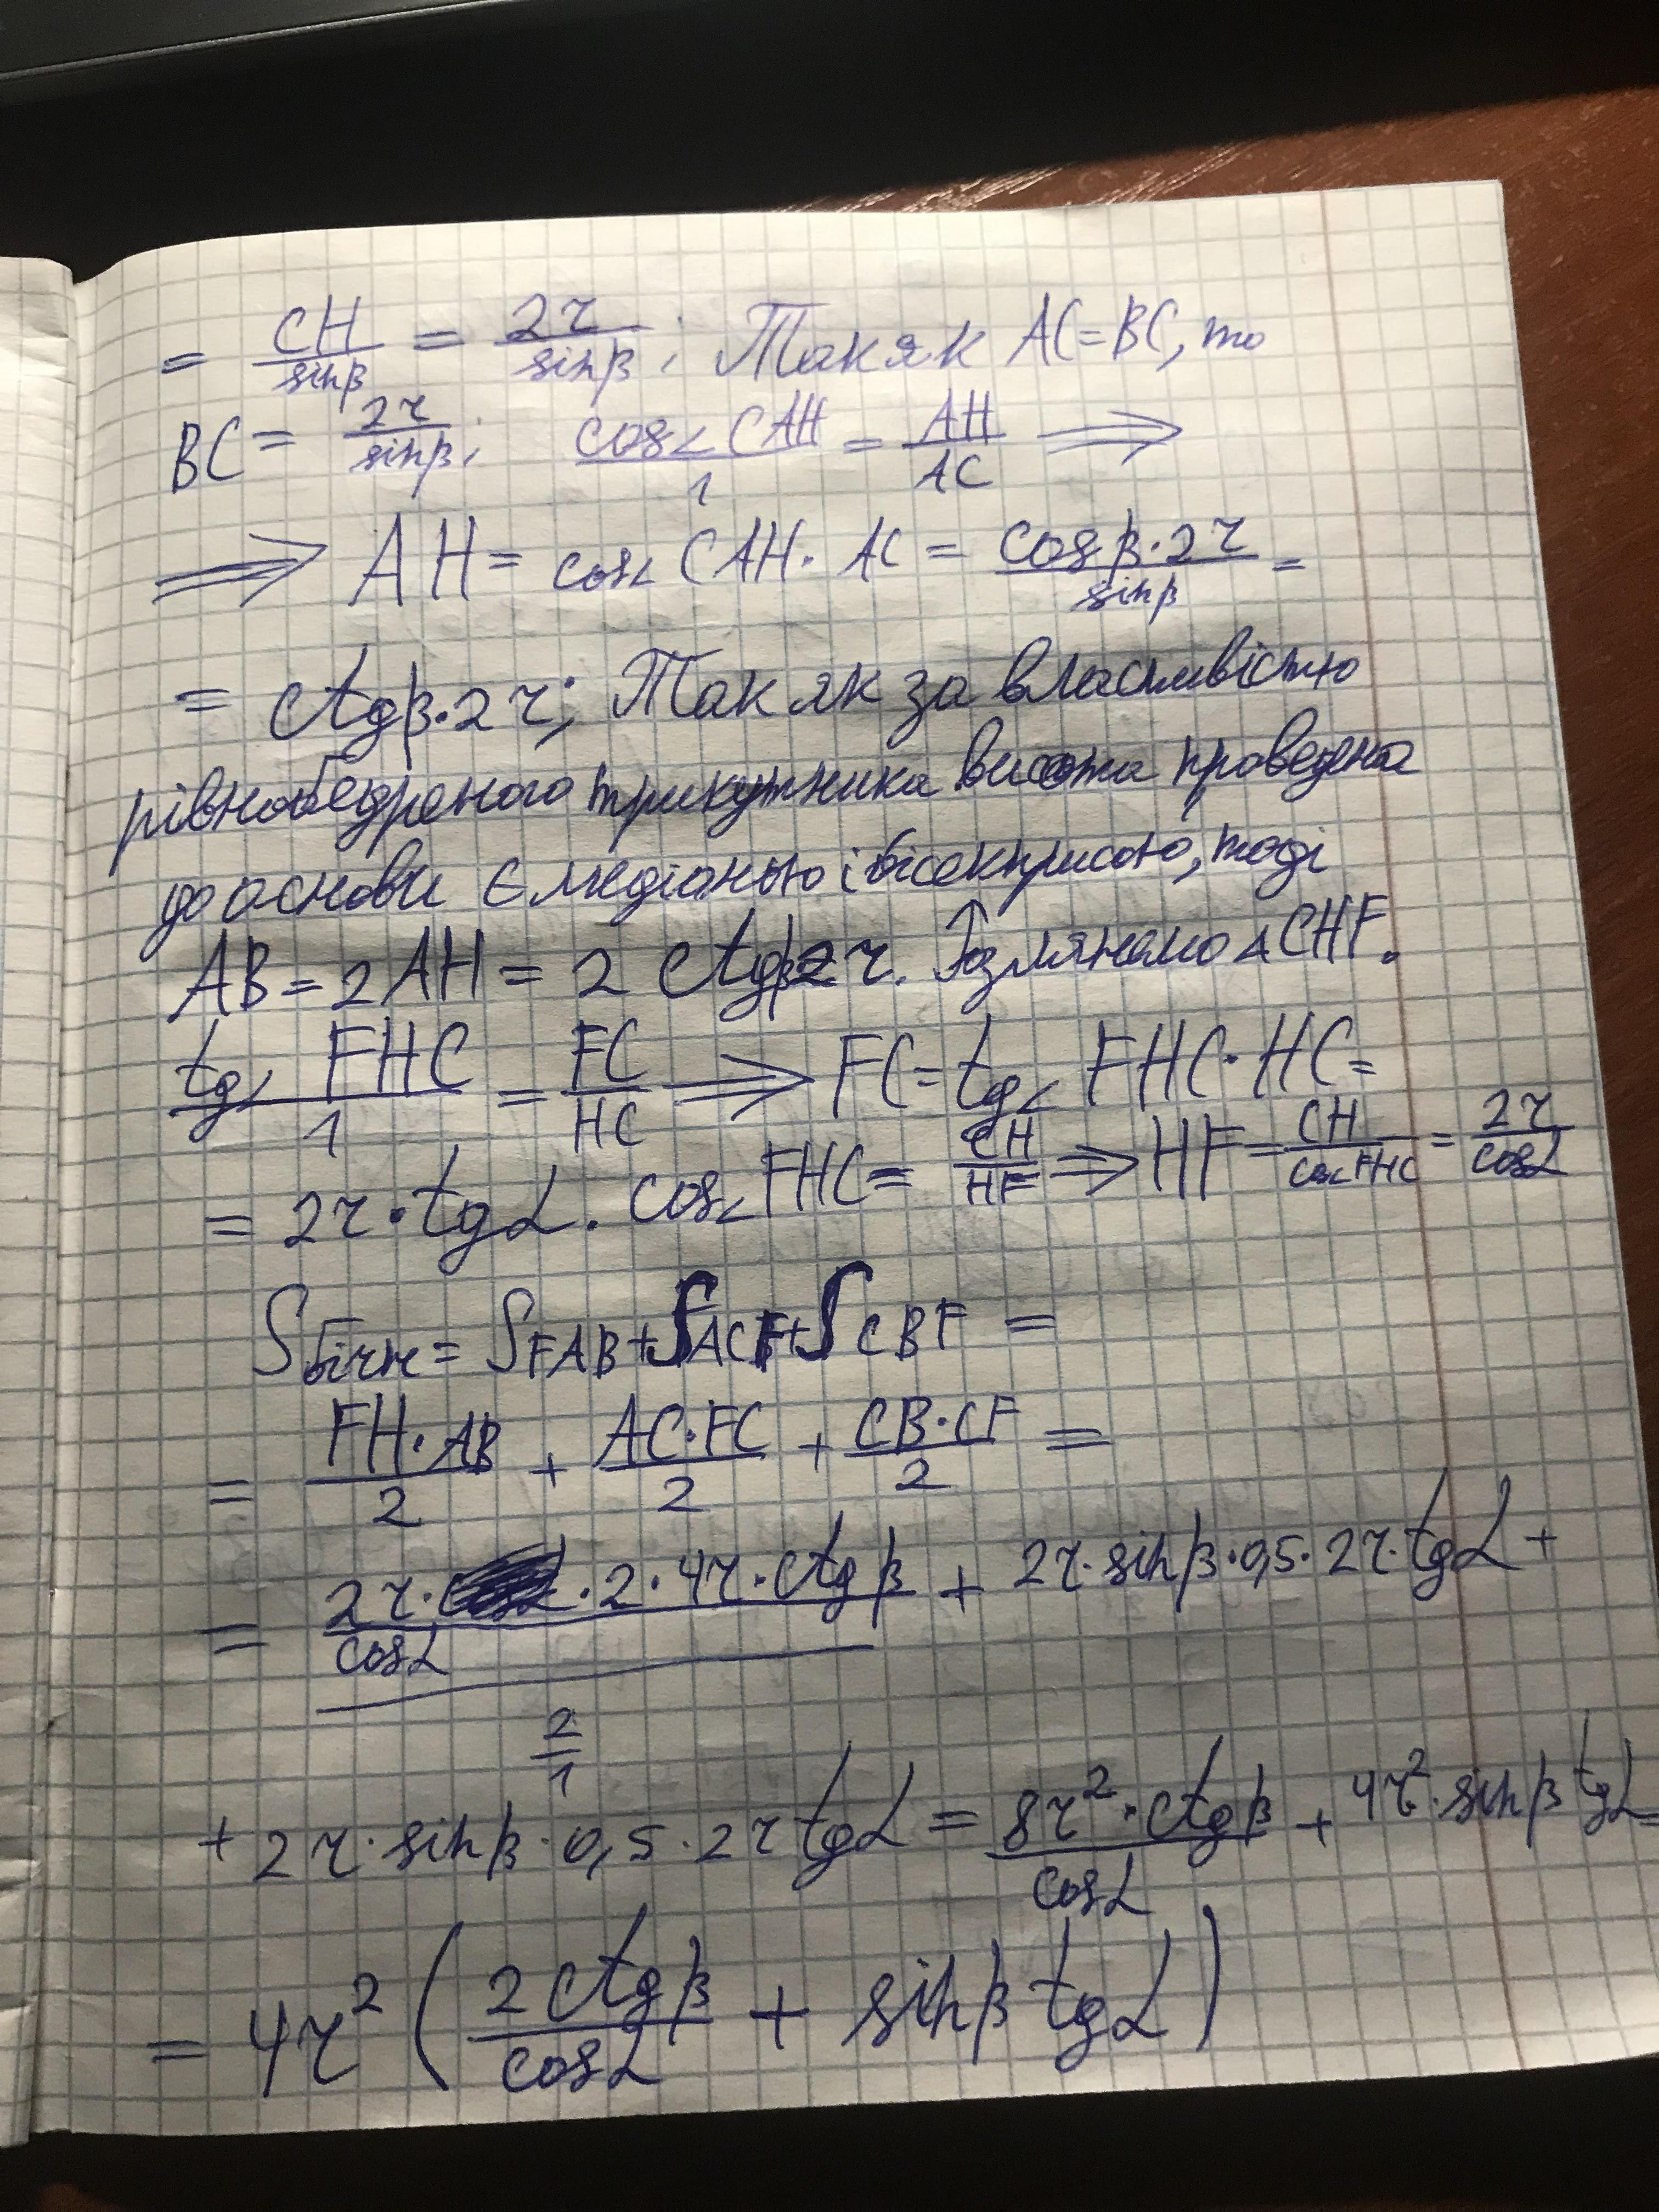 = CH/sinβ = 2r/sinβ; Так як AC=BC, то
BC = 2r/sinβ; cos∠CAH/1 = AH/AC ⟹
⟹ AH = cos∠CAH · AC = cosβ·2r/sinβ =
= ctgβ·2r; Так як за властивістю
рівнобедреного трикутника висота проведена
до основи є медіаною і бісектрисою, тоді
AB = 2AH = 2 ctgβ2r. Розглянемо △CHF.
tg∠FHC/1 = FC/HC ⟹ FC = tg∠FHC·HC =
= 2r·tgα. cos∠FHC = CH/HF ⟹ HF = CH/cos∠FHC = 2r/cosα
Sбічн = SFAB + SACF + SCBF =
= FH·AB/2 + AC·FC/2 + CB·CF/2 =
= 2r/cosα · 2·4r·ctgβ + 2r·sinβ·0,5·2r·tgα +
2/1
+ 2r·sinβ·0,5·2r tgα = 8r²·ctgβ/cosα + 4r²·sinβ tgα =
= 4r² (2ctgβ/cosα + sinβ tgα)